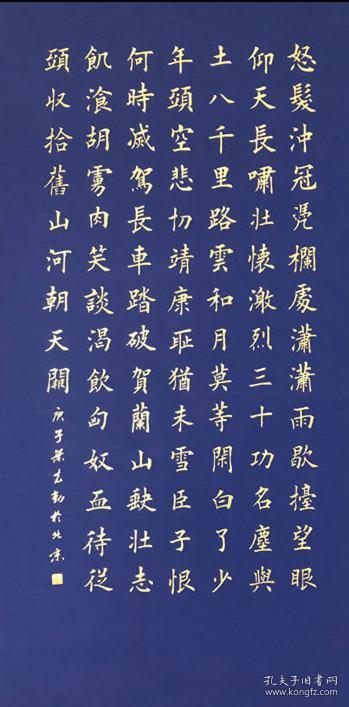 怒髮沖冠凴欄處瀟瀟雨歇擡望眼
仰天長嘯壯懷激烈三十功名塵與
土八千里路雲和月莫等閑白了少
年頭空悲切靖康耻猶未雪臣子恨
何時滅駕長車踏破賀蘭山缺壯志
飢湌胡虜肉笑談渴飲匈奴血待從
頭收拾舊山河朝天闕
庚子於北京
孔夫子旧书网
kongfz.com